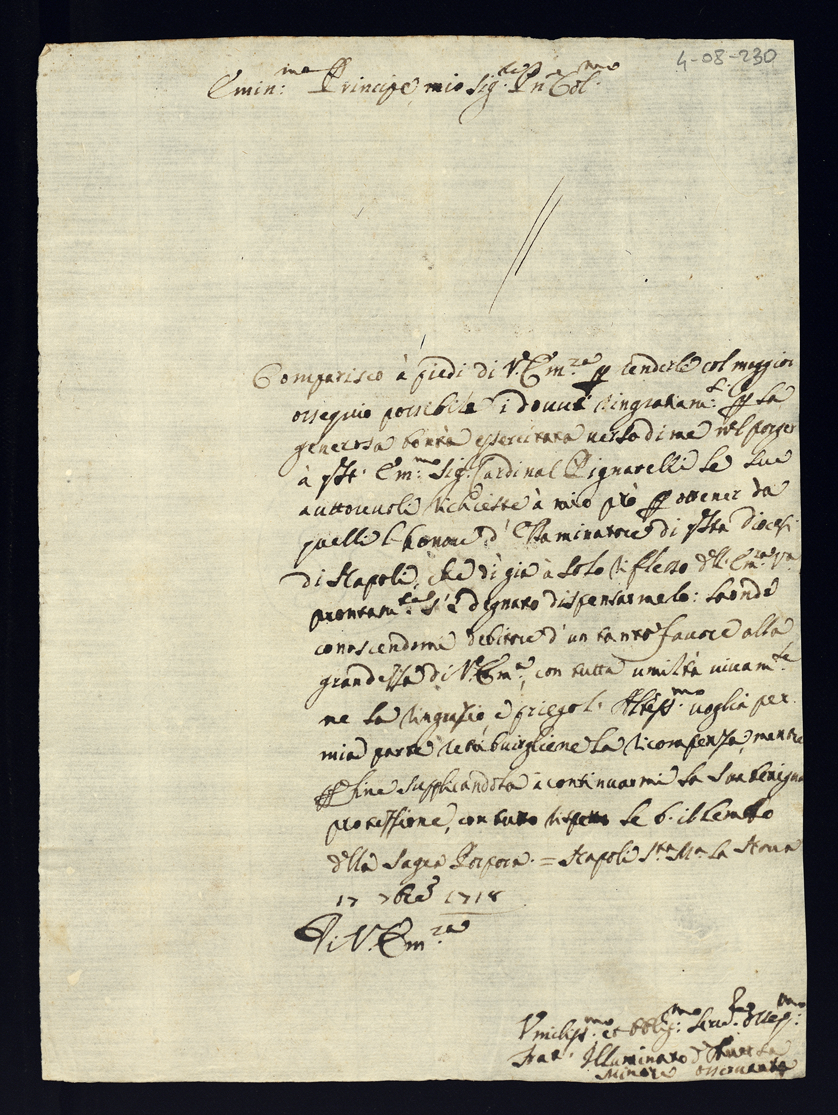 4-08-230
Emin:mo Principe mio Sig.r Pn Col.mo
Comparisco à piedi di V. Em.za per renderle col maggior
ossequio possibile i dovuti ringratiam.ti per la
generosa bontà essercitata verso di me nel porger
à Em.mo Sig. Cardinal Pignatelli le sue
auttorevoli richieste à mio prò per ottener da
quelli l'honore d'Esaminatore di diocesi
di Napoli, che di già à solo riflesso dell' Em.za V.ra
prontam.te s'è degnato dispensarmelo: laonde
conoscendomi debitore d'un tanto favore alla
grandezza di V. Em.za, con tutta umiltà vivam.te
ne la ringrazio, e priego l' Altiss.mo voglia per
mia parte retribuirgliene la ricompensa, mentre
per fine supplicandola à continuarmi la sua benigna
protezzione, con tutto rispetto le b. il lembo
della Sagra Porpora. = Napoli S.ta M.a la Nova
17 7bre 1718
Di V. Em.za
Umiliss.mo et obblig.mo Serv.re osseq.mo
Frat' Illuminato d'Aversa
Minore osservante